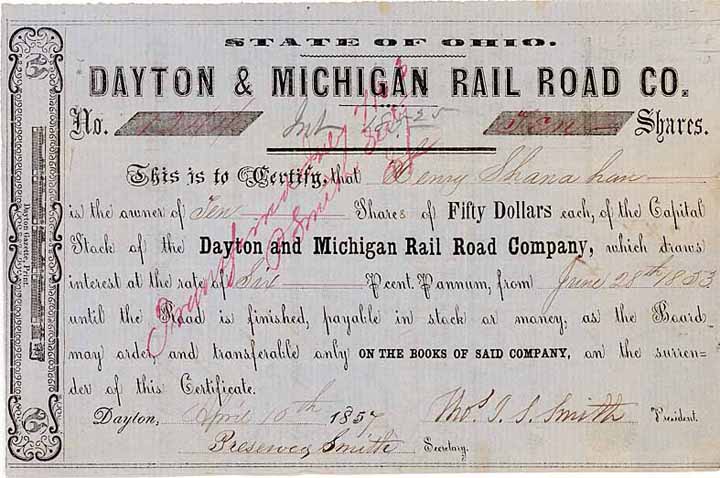 STATE OF OHIO.
DAYTON & MICHIGAN RAIL ROAD CO.
No. Int Ten Shares.
This is to Certify, that Henry Shanahan
is the owner of Ten Shares of Fifty Dollars each, of the Capital
Stock of the Dayton and Michigan Rail Road Company, which draws
interest at the rate of Six P cent. P annum, from June 28th 1853
until the Road is finished, payable in stock or money, as the Board
may order, and transferable only ON THE BOOKS OF SAID COMPANY, on the surren-
der of this Certificate.
Dayton, April 10th 1857 Thos. J. S. Smith President.
Preserved Smith Secretary.
Dayton Gazette, Print.
P Smith Sect